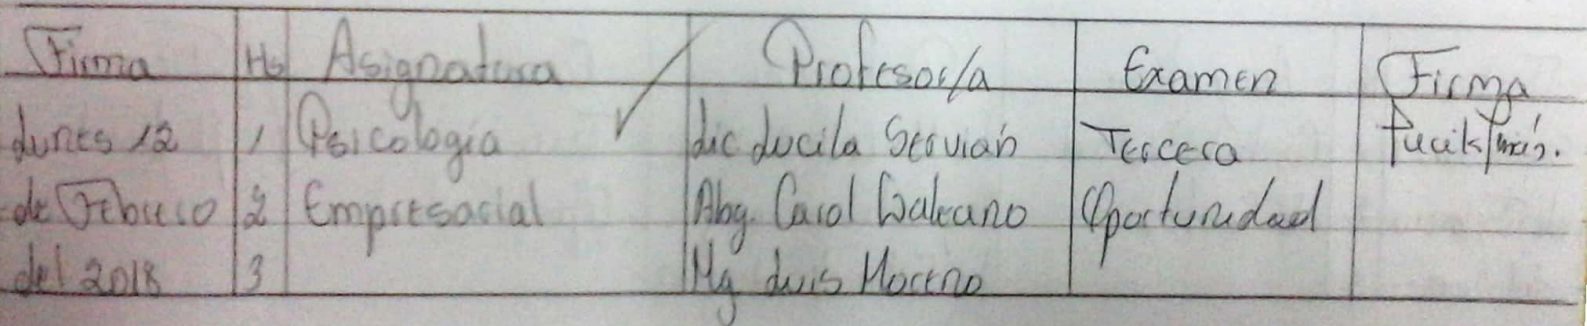 Firma Hs Asignatura Profesor/a Examen Firma
Lunes 12 1 Psicología Lic Lucila Servian Tercera
de Febrero 2 Empresarial Abg. Carol Galeano Oportunidad
del 2018 3 Mg Luis Moreno